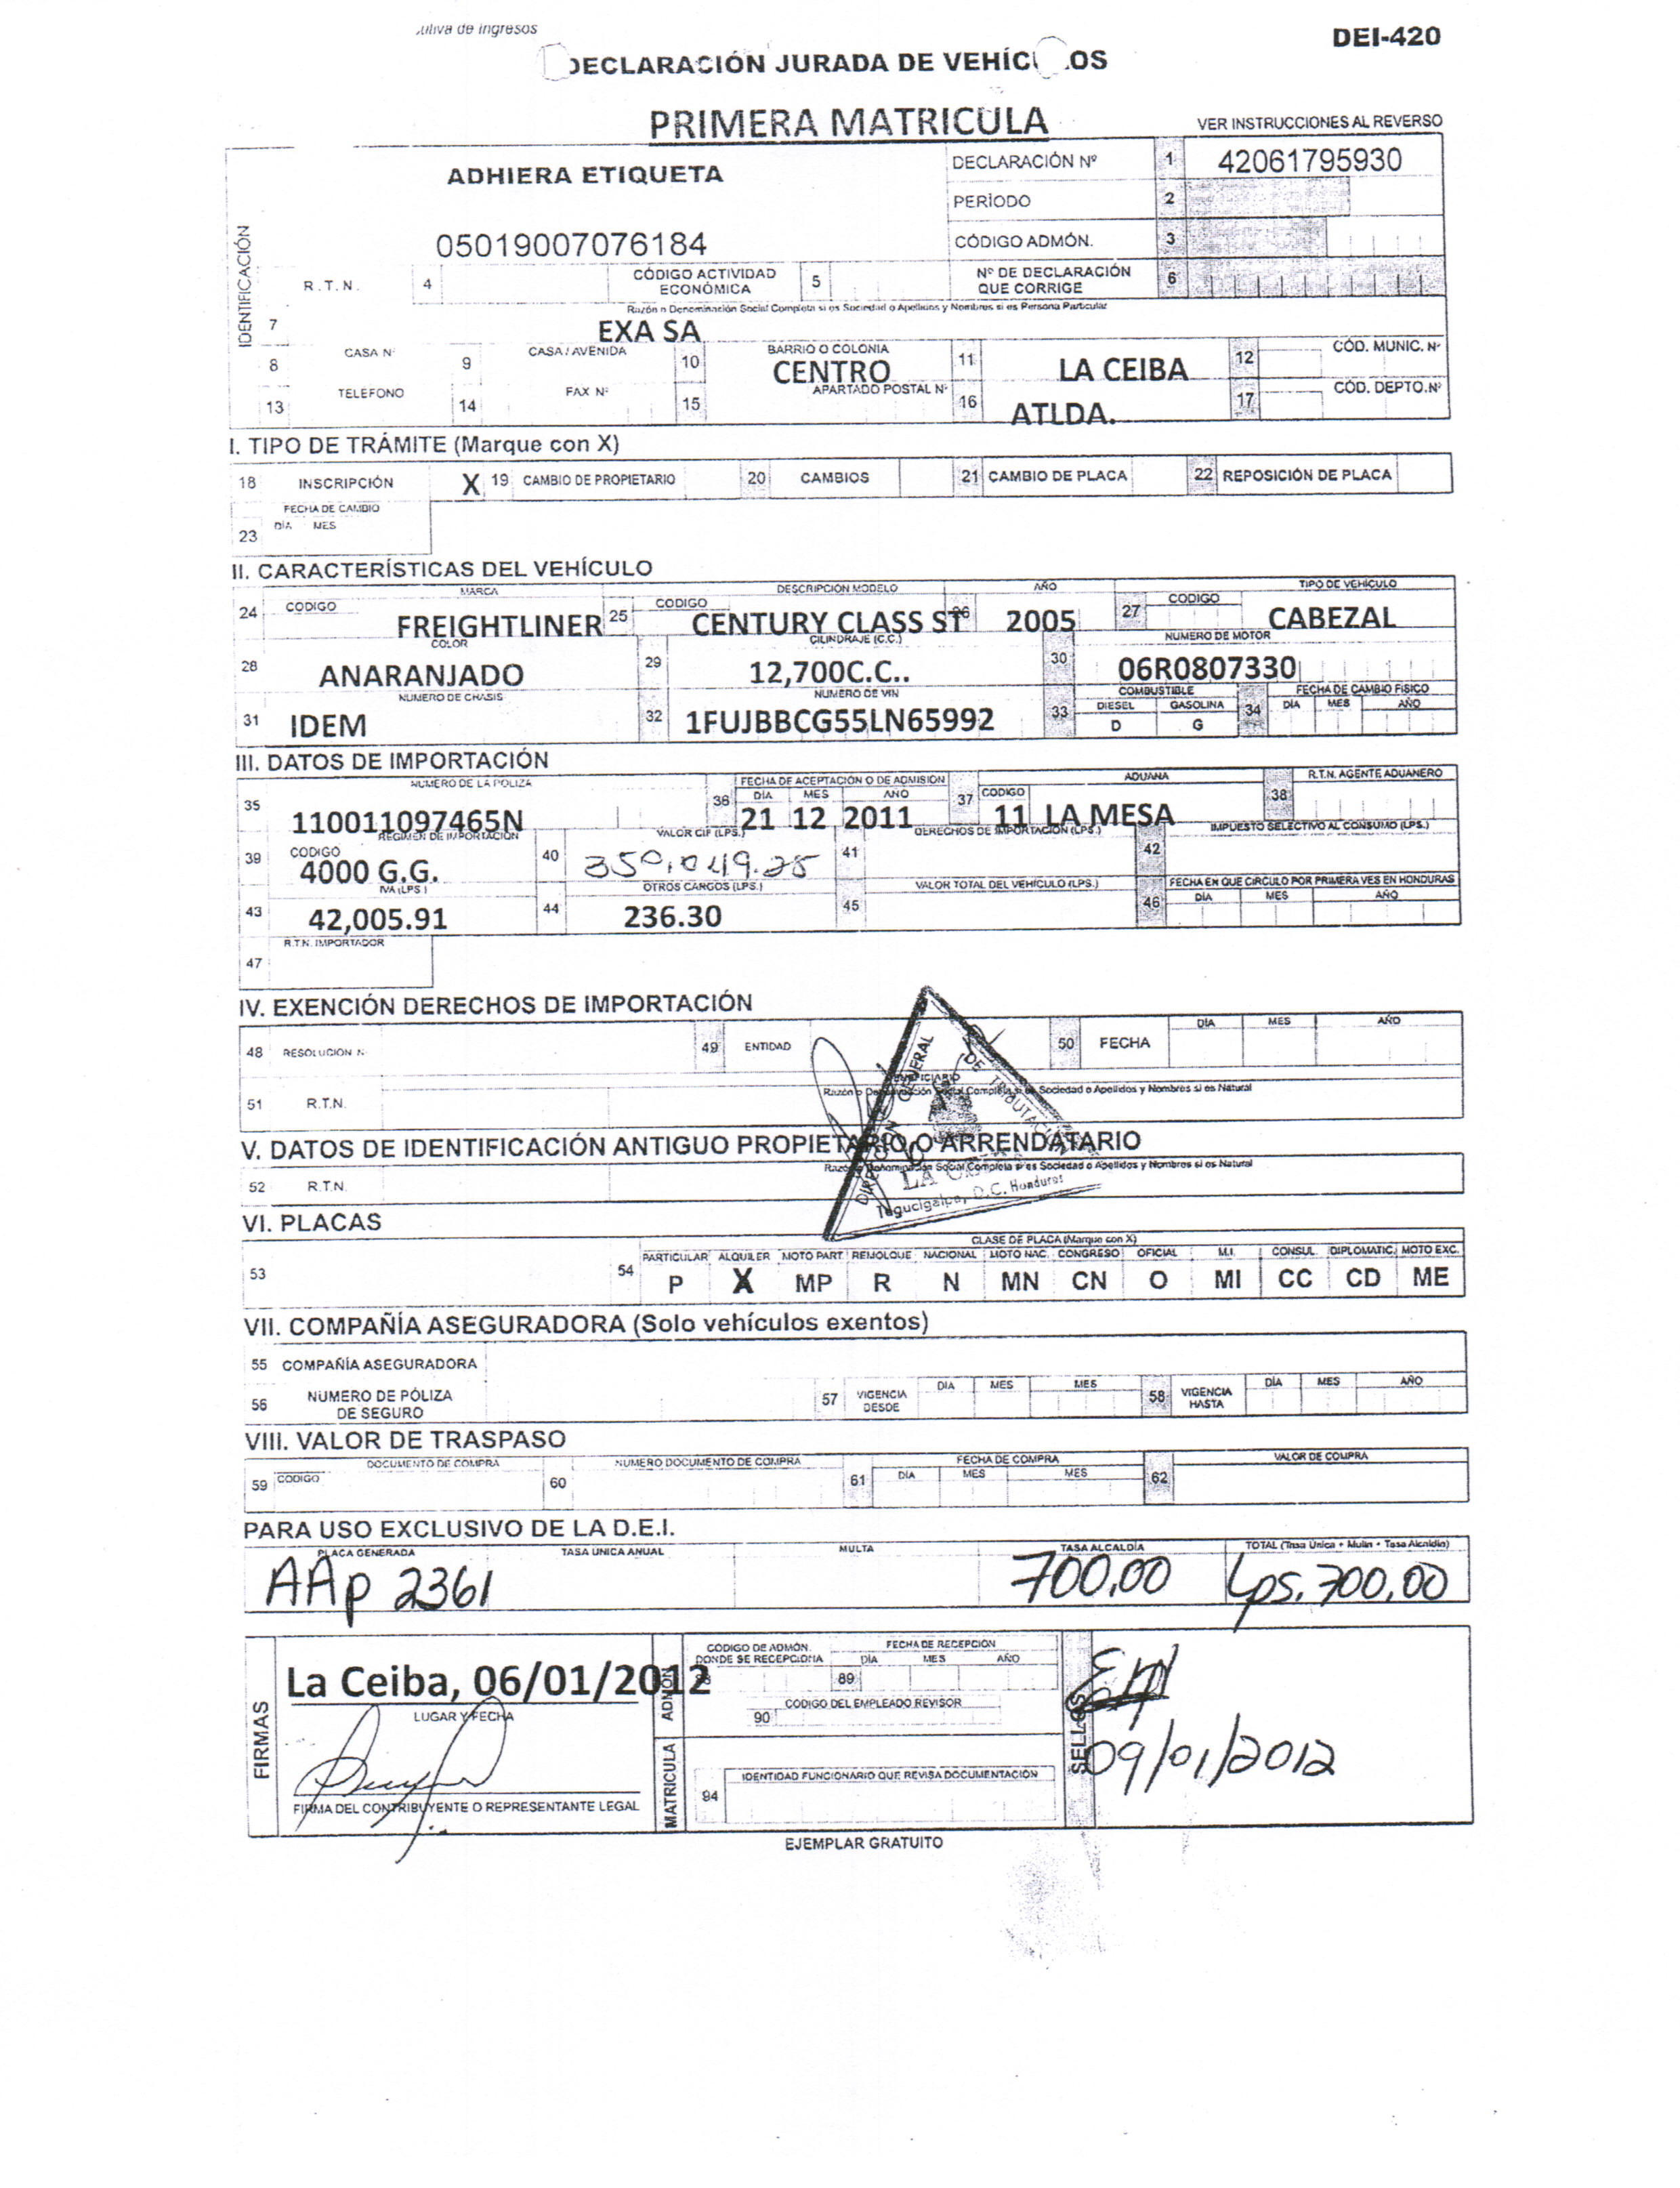 DEI-420
DECLARACIÓN JURADA DE VEHÍC OS
PRIMERA MATRICULA
VER INSTRUCCIONES AL REVERSO
IDENTIFICACIÓN
ADHIERA ETIQUETA
DECLARACIÓN Nº 1 42061795930
PERÍODO 2
05019007076184
CÓDIGO ADMÓN. 3
R.T.N. 4 CÓDIGO ACTIVIDAD ECONÓMICA 5 Nº DE DECLARACIÓN QUE CORRIGE 6
Razón o Denominación Social Completa si es Sociedad o Apellidos y Nombres si es Persona Particular
7 EXA SA
8 CASA Nº 9 CASA / AVENIDA 10 BARRIO O COLONIA CENTRO 11 LA CEIBA 12 CÓD. MUNIC. Nº
13 TELEFONO 14 FAX Nº 15 APARTADO POSTAL Nº 16 ATLDA. 17 CÓD. DEPTO. Nº
I. TIPO DE TRÁMITE (Marque con X)
18 INSCRIPCIÓN X 19 CAMBIO DE PROPIETARIO 20 CAMBIOS 21 CAMBIO DE PLACA 22 REPOSICIÓN DE PLACA
FECHA DE CAMBIO
23 DÍA MES
II. CARACTERÍSTICAS DEL VEHÍCULO
MARCA DESCRIPCIÓN MODELO AÑO TIPO DE VEHÍCULO
24 CODIGO FREIGHTLINER 25 CODIGO CENTURY CLASS ST 26 2005 27 CODIGO CABEZAL
COLOR CILINDRAJE (C.C.) NUMERO DE MOTOR
28 ANARANJADO 29 12,700C.C.. 30 06R0807330
NUMERO DE CHASIS NUMERO DE VIN COMBUSTIBLE FECHA DE CAMBIO FISICO
31 IDEM 32 1FUJBBCG55LN65992 33 DIESEL D GASOLINA G 34 DÍA MES AÑO
III. DATOS DE IMPORTACIÓN
NUMERO DE LA POLIZA FECHA DE ACEPTACIÓN O DE ADMISIÓN ADUANA R.T.N. AGENTE ADUANERO
35 110011097465N 36 DÍA MES AÑO 21 12 2011 37 CODIGO 11 LA MESA 38
REGIMEN DE IMPORTACIÓN VALOR CIF (LPS.) DERECHOS DE IMPORTACIÓN (LPS.) IMPUESTO SELECTIVO AL CONSUMO (LPS.)
39 CODIGO 4000 G.G. 40 350,049.25 41 42
IVA (LPS.) OTROS CARGOS (LPS.) VALOR TOTAL DEL VEHÍCULO (LPS.) FECHA EN QUE CIRCULO POR PRIMERA VES EN HONDURAS
43 42,005.91 44 236.30 45 46 DÍA MES AÑO
R.T.N. IMPORTADOR
47
IV. EXENCIÓN DERECHOS DE IMPORTACIÓN
48 RESOLUCION Nº 49 ENTIDAD 50 FECHA DÍA MES AÑO
Completa si es Sociedad o Apellidos y Nombres si es Natural
51 R.T.N.
DIRECCIÓN GENERAL DE TRIBUTACIÓN
V. DATOS DE IDENTIFICACIÓN ANTIGUO PROPIETARIO O ARRENDATARIO
Razón o Denominación Social Completa si es Sociedad o Apellidos y Nombres si es Natural
52 R.T.N.
Tegucigalpa, D.C. Honduras
VI. PLACAS
CLASE DE PLACA (Marque con X)
PARTICULAR ALQUILER MOTO PART REMOLQUE NACIONAL MOTO NAC. CONGRESO OFICIAL M.I. CONSUL DIPLOMATIC. MOTO EXC.
53 54 P X MP R N MN CN O MI CC CD ME
VII. COMPAÑÍA ASEGURADORA (Solo vehículos exentos)
55 COMPAÑÍA ASEGURADORA
56 NUMERO DE PÓLIZA DE SEGURO 57 VIGENCIA DESDE DÍA MES MES 58 VIGENCIA HASTA DÍA MES AÑO
VIII. VALOR DE TRASPASO
DOCUMENTO DE COMPRA NUMERO DOCUMENTO DE COMPRA FECHA DE COMPRA VALOR DE COMPRA
59 CODIGO 60 61 DÍA MES MES 62
PARA USO EXCLUSIVO DE LA D.E.I.
PLACA GENERADA TASA UNICA ANUAL MULTA TASA ALCALDÍA TOTAL (Tasa Única + Multa + Tasa Alcaldía)
AAp 2361 700.00 Lps. 700,00
FIRMAS
La Ceiba, 06/01/2012
LUGAR Y FECHA
FIRMA DEL CONTRIBUYENTE O REPRESENTANTE LEGAL
ADMÓN
CÓDIGO DE ADMÓN. DONDE SE RECEPCIONA FECHA DE RECEPCIÓN
89 DÍA MES AÑO
CODIGO DEL EMPLEADO REVISOR
90
MATRICULA
IDENTIDAD FUNCIONARIO QUE REVISA DOCUMENTACIÓN
94
SELLOS
09/01/2012
EJEMPLAR GRATUITO